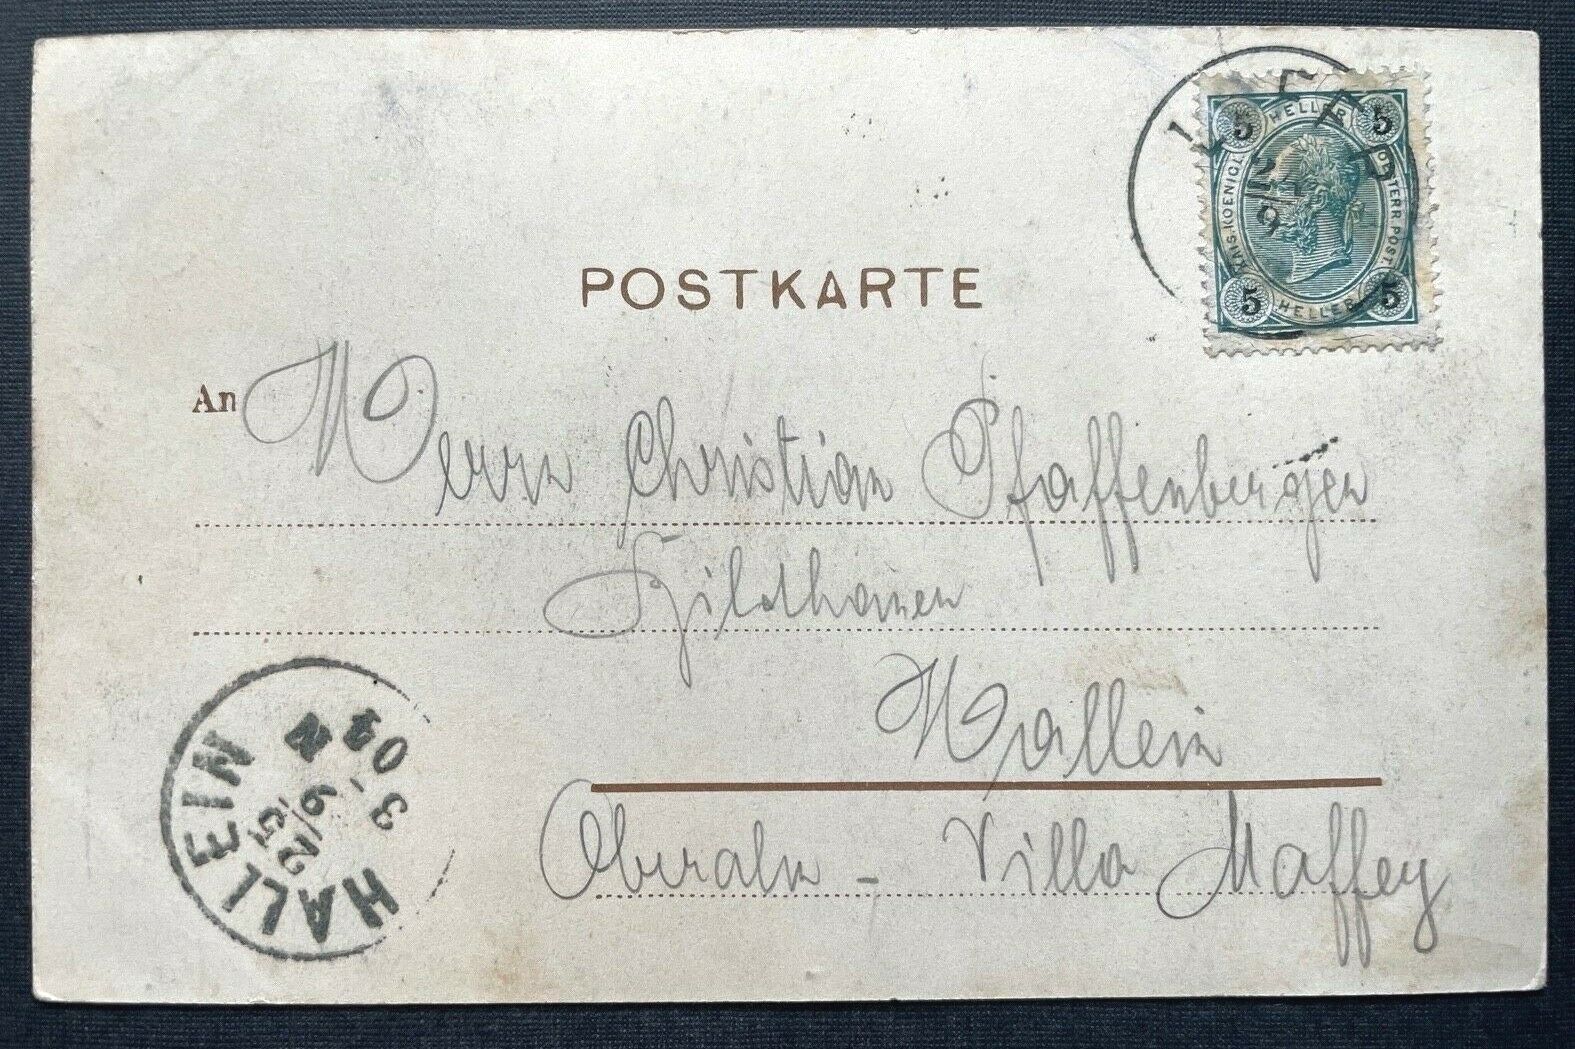 POSTKARTE
5 HELLER 5
KAIS. KOENIGL. OESTERR. POST.
5 HELLER 5
9
An Herrn Christian Pfaffenberger
Bildhauer
Hallein
Oberalm - Villa Maffey
HALLEIN
3 - 04
N